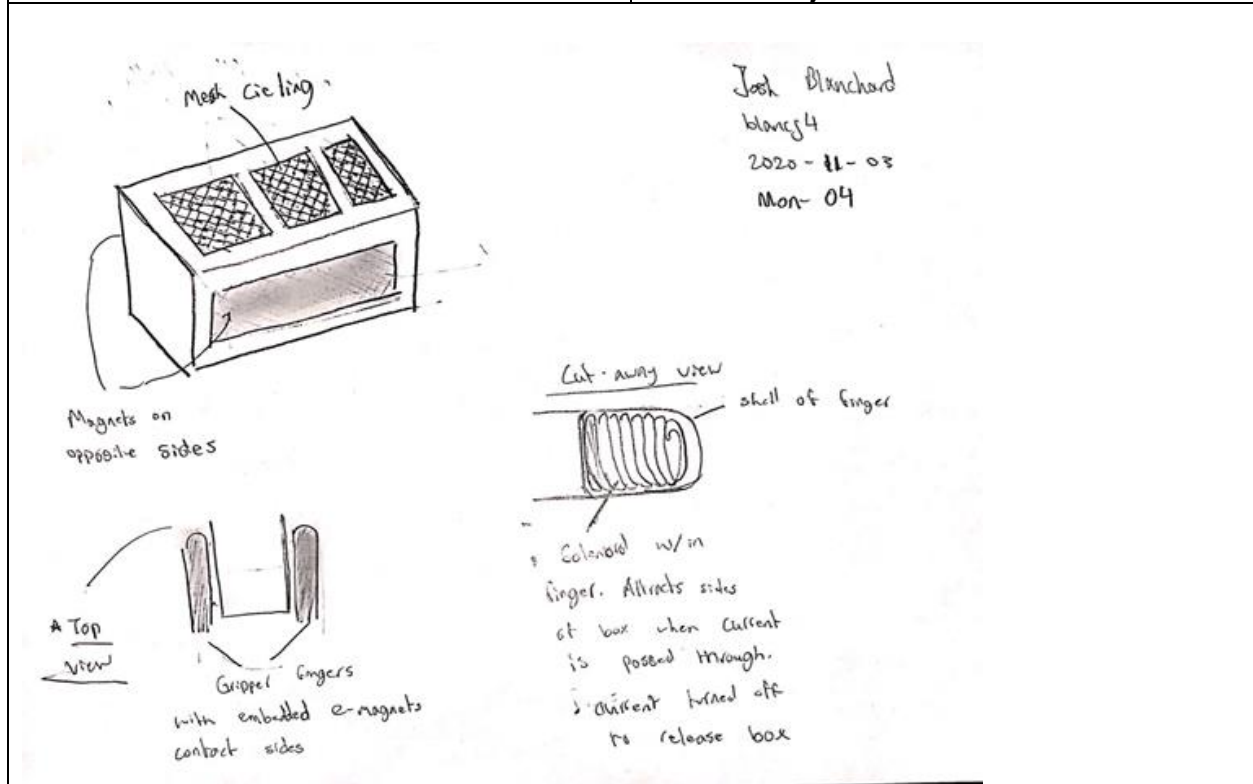 Mesh Cieling
Josh Blanchard
blancj4
2020-11-03
Mon-04
Magnets on
opposite sides
Cut-away view
shell of finger
Solenoid w/in
finger. Attracts sides
of box when current
is passed through.
current turned off
to release box
* Top
view
Gripper fingers
with embedded e-magnets
contact sides